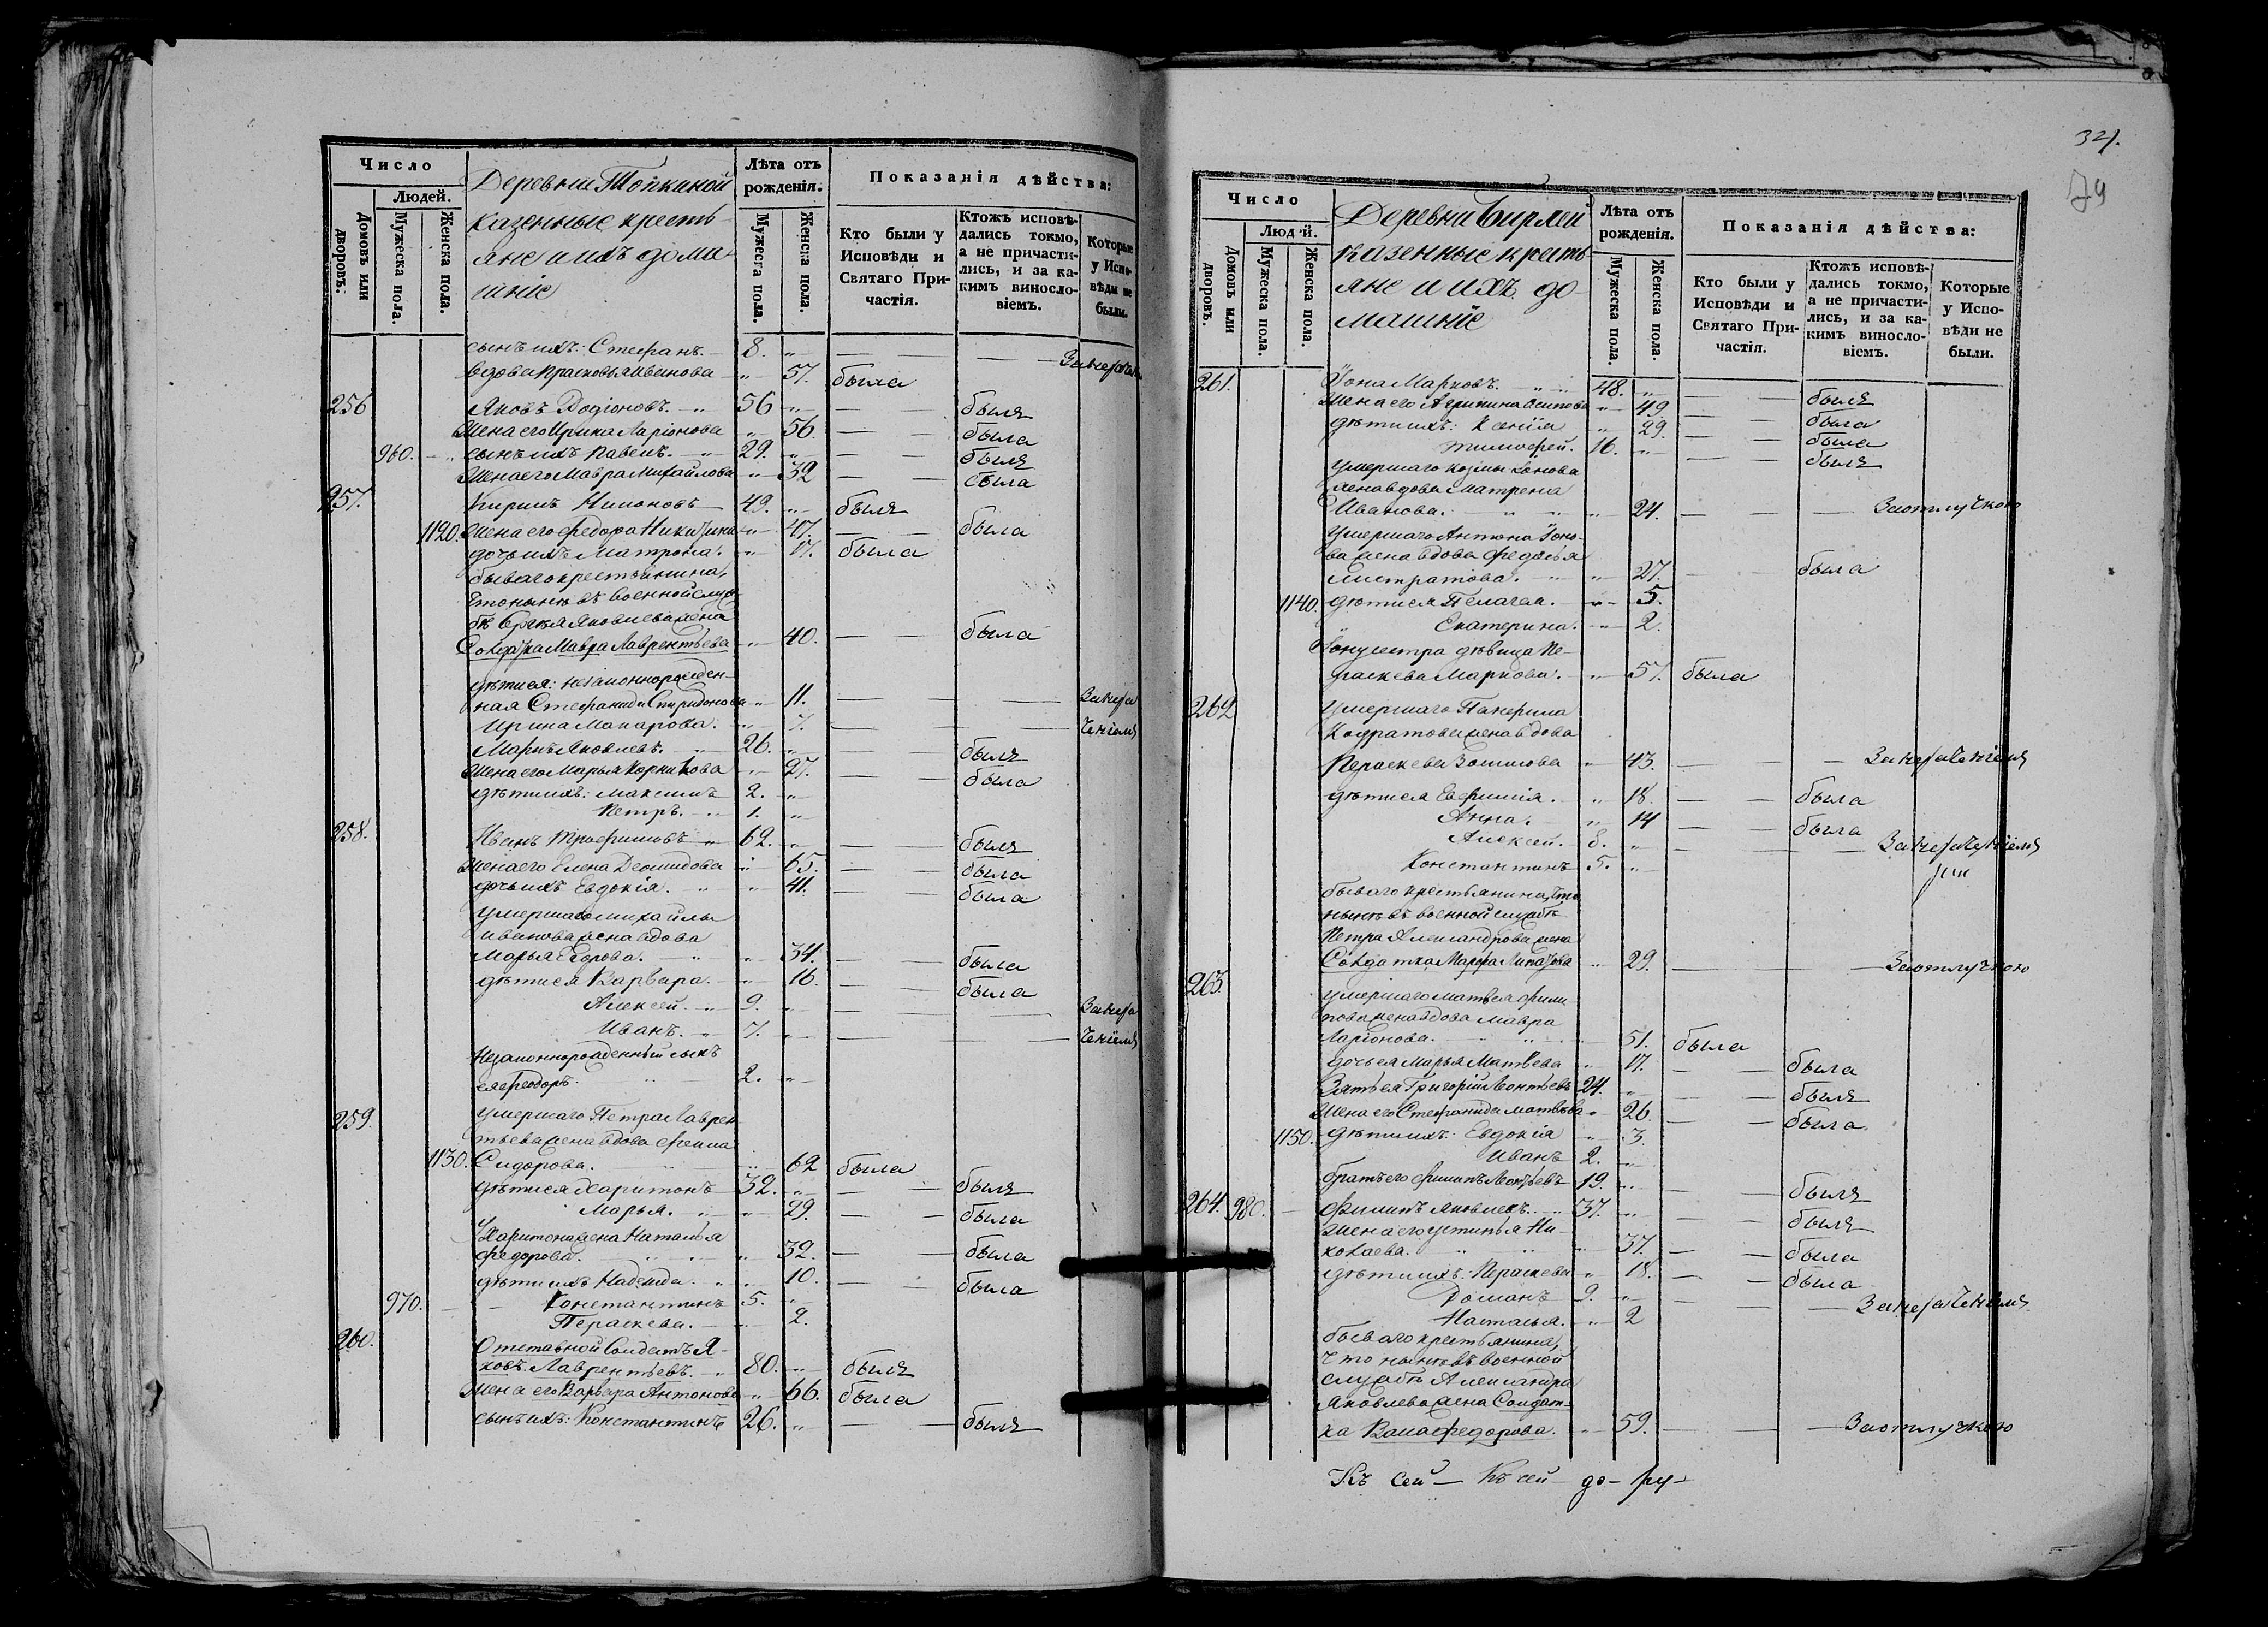 Число
Людей.
Домовъ или дворовъ.
Мужеска пола.
Женска пола.
Деревни Топкиной
казенные кресть
яне и ихъ дома
шніе
Лѣта отъ рожденія.
Мужеска пола.
Женска пола.
Показанія дѣйства:
Кто были у Исповѣди и Святаго Причастія.
Ктожъ исповѣдались токмо, а не причастились, и за какимъ винословіемъ.
Которые у Исповѣди не были.
сынъ ихъ: Стефанъ. 8. „
вдова Прасковья Иванова „ 57. была
256 Яковъ Родіоновъ. „ 56 „ былъ
Жена его Ирина Ларіонова „ 56. была
960. сынъ ихъ Павелъ. „ 29. „ былъ
Жена его Мавра Михайлова „ 32 была
257. Кирилъ Никоновъ 49. „ былъ
1120. Жена его Федора Никитина „ 47. была
дочь ихъ Матрона. „ 17. была
бываго крестьянина,
что нынѣ въ военной служ
бѣ Сергѣя Яковлева жена
Солдатка Мавра Лаврентьева „ 40. была
дѣти ея: незаконнорожден-
ная Стефанида Спиридонова „ 11. За нера
Ирина Макарова. „ 7. ченіемъ
Маркъ Яковлевъ. „ 26. „ былъ
Жена его Марья Корнилова „ 27. была
дѣти ихъ: Максимъ 2. „
Петръ. „ 1. „
258. Иванъ Трофимовъ „ 62. „ былъ
Жена его Елена Деомидова „ 65. была
дочь ихъ Евдокія. „ „ 41. была
умершаго Михайлы
Иванова жена вдова
Марья Егорова. „ „ 34. была
дѣти ея Варвара. „ 16. была
Алексей. „ 9. „ За нера
Иванъ. „ 7. „ ченіемъ
Незаконнорожденный сынъ
ея Феодоръ. „ 2. „
259. умершаго Петра Лаврен
тьева жена вдова Фекла
1130. Сидорова. „ „ 62 была
дѣти ея Харитонъ 32. „ былъ
Марья. „ „ 29. была
У Харитона жена Наталья
Федорова. „ „ „ 32. была
дѣти ихъ Надежда. „ „ 10. была
970. Константинъ 5. „
Параскева. „ 2.
260. Отставной Солдатъ Я-
ковъ Лаврентьевъ. „ 80. „ былъ
Жена его Варвара Антонова „ 66. была
сынъ ихъ: Константинъ 26. „ былъ
79
Число
Людей.
Домовъ или дворовъ.
Мужеска пола.
Женска пола.
Деревни Бирлей
казенные кресть
яне и ихъ до
машніе
Лѣта отъ рожденія.
Мужеска пола.
Женска пола.
Показанія дѣйства:
Кто были у Исповѣди и Святаго Причастія.
Ктожъ исповѣдались токмо, а не причастились, и за какимъ винословіемъ.
Которые у Исповѣди не были.
261. Іона Марковъ. „ „ 48. „ былъ
Жена его Агрипина Осипова „ 49. была
дѣти ихъ: Ксенія „ 29. была
Тимофей. 16. „ былъ
Умершаго Козмы Іонова
жена вдова Матрена
Иванова. „ „ „ 24. За отлучкою
Умершаго Антона Іоно-
ва жена вдова Федосья
Листратова. „ „ 27. была
1140. дѣти ея Пелагея. „ 5.
Екатерина. „ 2.
У Іоны сестра дѣвица Па-
раскева Маркова. „ 57. была
262 Умершаго Панфила
Кодратова жена вдова
Параскева Зотикова „ 43. За нераченіемъ
дѣти ея Евфимія. „ 18. была
Анна. „ 14 была
Алексей. 8. „ За нераченіемъ
Константинъ 5. „
бываго крестьянина, что
нынѣ въ военной службѣ
Петра Александрова жена
Солдатка Марфа „ 29. За отлучкою
263. умершаго Матвея Фили
пова жена вдова Мавра
Ларіонова. „ „ 51. была
дочь ея Марья Матвева „ 17. была
Зять ея Григорій Леонтьевъ 24. „ былъ
Жена его Стефанида Матвева „ 26. была
1150. дѣти ихъ: Евдокія „ 3.
Иванъ 2. „
братъ его Филипъ Леонтьевъ 19. „ былъ
264. 980. Филипъ Яковлевъ. „ 37. „ былъ
Жена его Устинья Ни-
колаева. „ „ „ 37. была
дѣти ихъ: Параскева „ 18. была
Романъ 9. „ За нераченіемъ
Настасья. „ 2
бываго крестьянина,
что нынѣ въ военной
службѣ Александра
Яковлева жена Солдат-
ка Федорова. „ 59. За отлучкою
Къ сей — Къ сей — до — ру —